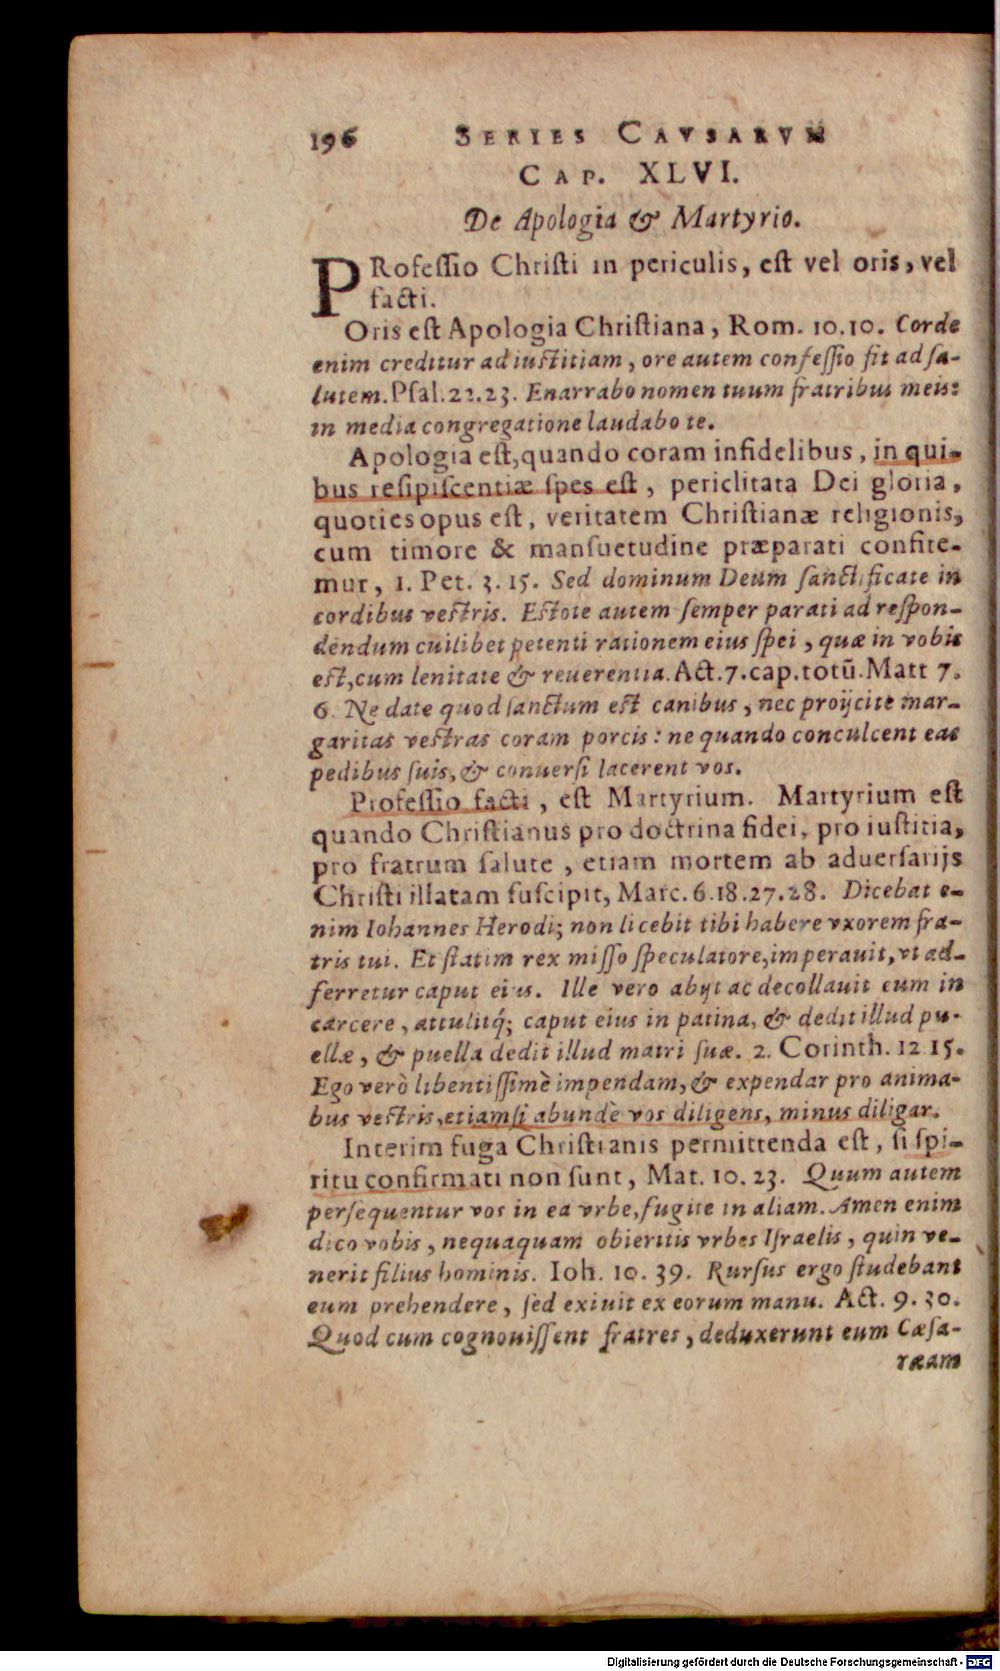 196 SERIES CAVSARVM
CAP. XLVI.
De Apologia & Martyrio.
PRofessio Christi in periculis, est vel oris, vel
facti.
Oris est Apologia Christiana, Rom. 10.10. Corde
enim creditur ad iustitiam, ore autem confessio fit ad sa-
lutem. Psal. 22.23. Enarrabo nomen tuum fratribus meis:
in media congregatione laudabo te.
Apologia est, quando coram infidelibus, in qui-
bus resipiscentiæ spes est, periclitata Dei gloria,
quoties opus est, veritatem Christianæ religionis,
cum timore & mansuetudine præparati confite-
mur, 1. Pet. 3. 15. Sed dominum Deum sanctificate in
cordibus vestris. Estote autem semper parati ad respon-
dendum cuilibet petenti rationem eius spei, quæ in vobis
est, cum lenitate & reuerentia. Act. 7. cap. totũ. Matt 7.
6. Ne date quod sanctum est canibus, nec proijcite mar-
garitas vestras coram porcis: ne quando conculcent eas
pedibus suis, & conuersi lacerent vos.
Professio facti, est Martyrium. Martyrium est
quando Christianus pro doctrina fidei, pro iustitia,
pro fratrum salute, etiam mortem ab aduersarijs
Christi illatam suscipit, Marc. 6.18.27.28. Dicebat e-
nim Iohannes Herodi; non licebit tibi habere vxorem fra-
tris tui. Et statim rex misso speculatore, imperauit, vt ad-
ferretur caput eius. Ille vero abijt ac decollauit eum in
carcere, attulitq́; caput eius in patina, & dedit illud pu-
ellæ, & puella dedit illud matri suæ. 2. Corinth. 12 15.
Ego verò libentissimè impendam, & expendar pro anima-
bus vestris, etiamsi abundè vos diligens, minus diligar.
Interim fuga Christianis permittenda est, si spi-
ritu confirmati non sunt, Mat. 10. 23. Quum autem
persequentur vos in ea vrbe, fugite in aliam. Amen enim
dico vobis, nequaquam obieritis vrbes Israelis, quin ve-
nerit filius hominis. Ioh. 10. 39. Rursus ergo studebant
eum prehendere, sed exiuit ex eorum manu. Act. 9. 30.
Quod cum cognouissent fratres, deduxerunt eum Cæsa-
ræam
Digitalisierung gefördert durch die Deutsche Forschungsgemeinschaft - DFG